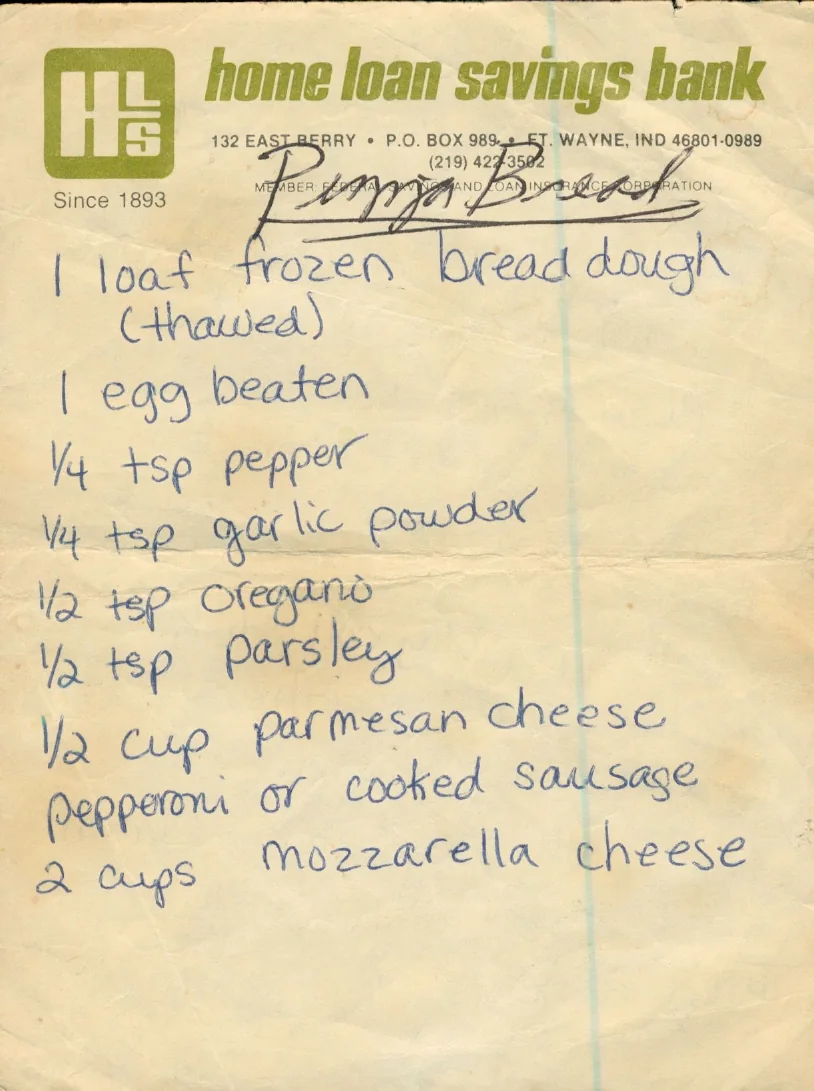 HLS
home loan savings bank
132 EAST BERRY • P.O. BOX 989 • FT. WAYNE, IND 46801-0989
(219) 422-3502
MEMBER: FEDERAL SAVINGS AND LOAN INSURANCE CORPORATION
Since 1893
Pizza Bread
1 loaf frozen bread dough
(thawed)
1 egg beaten
1/4 tsp pepper
1/4 tsp garlic powder
1/2 tsp oregano
1/2 tsp parsley
1/2 cup parmesan cheese
pepperoni or cooked sausage
2 cups mozzarella cheese